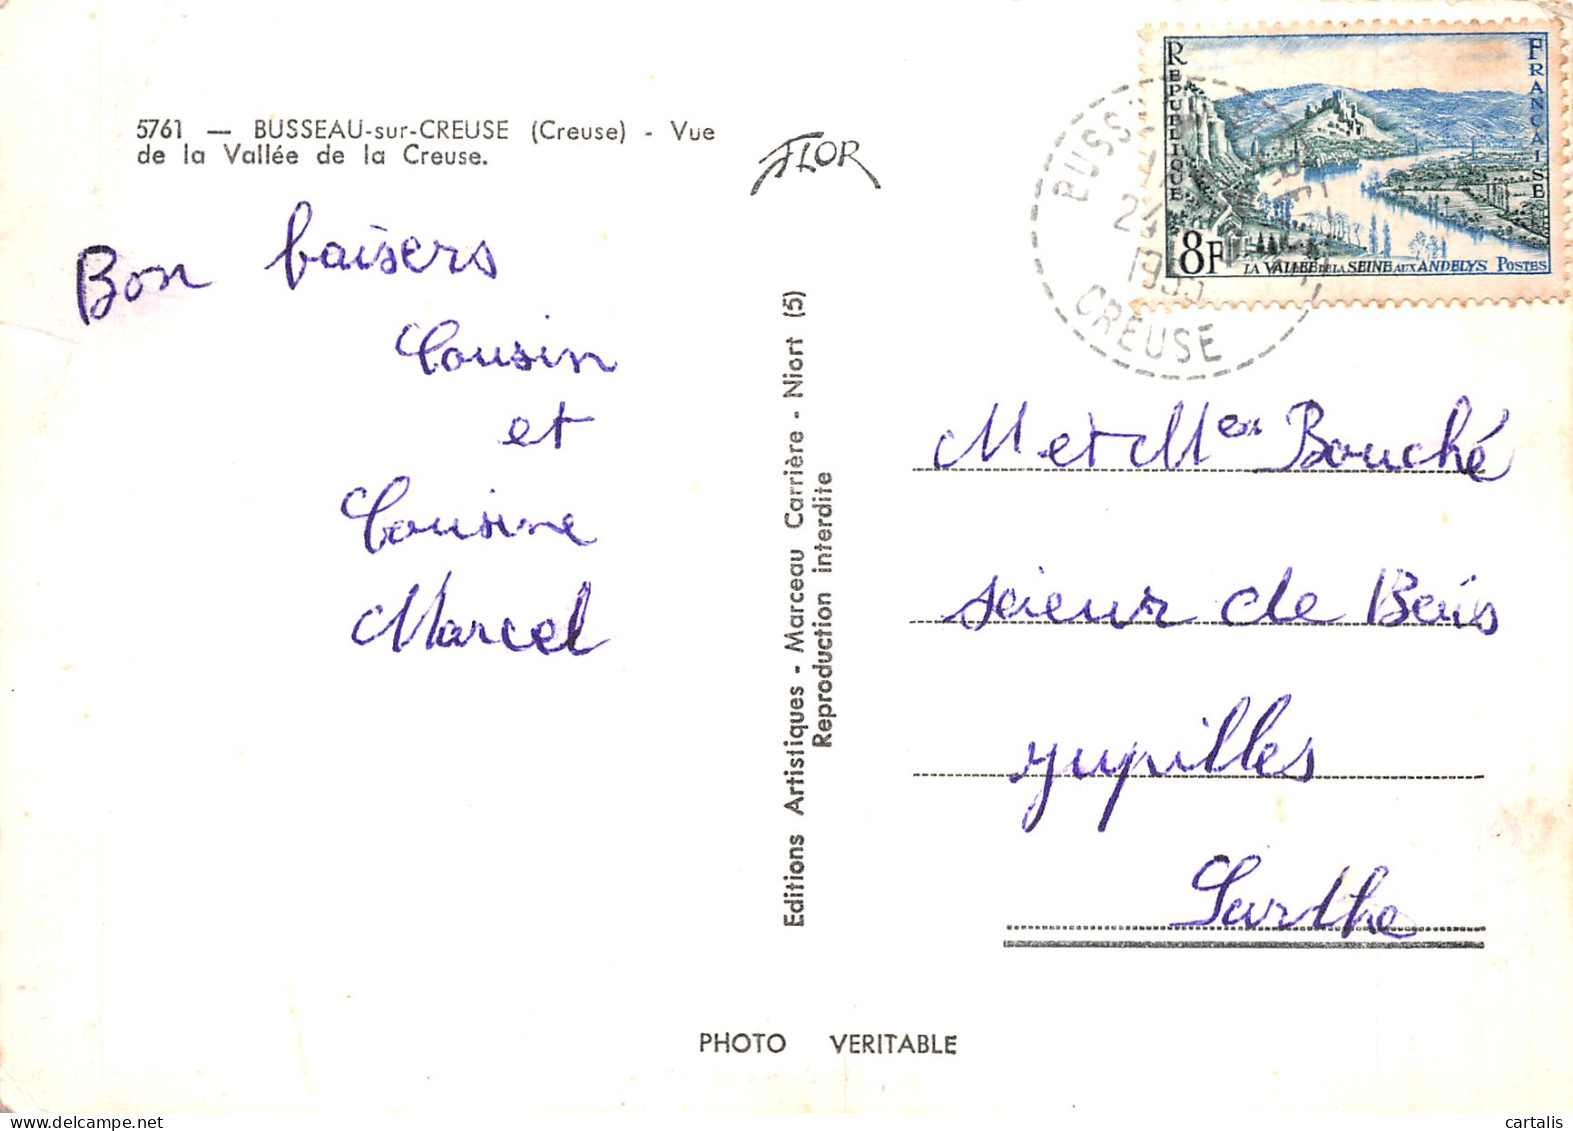 5761 — BUSSEAU-sur-CREUSE (Creuse) - Vue
de la Vallée de la Creuse.
FLOR
Bon baisers
Cousin
et
Cousine
Marcel
Editions Artistiques - Marceau Carrière - Niort (5)
Reproduction interdite
RÉPUBLIQUE
FRANÇAISE
8F
LA VALLÉE DE LA SEINE AUX ANDELYS POSTES
24
CREUSE
M et M Bouché
scieur de Bois
yupilles
Sarthe
PHOTO VERITABLE
cartalis
delcampe.net